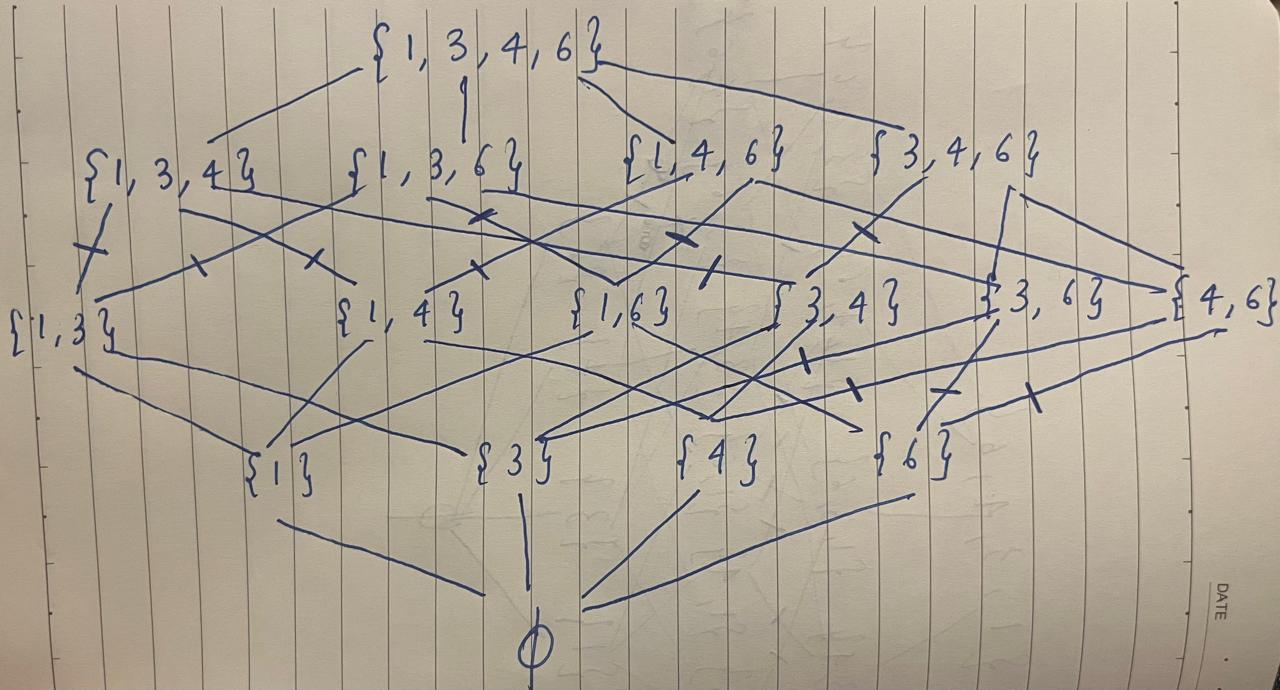 {1, 3, 4, 6}
{1, 3, 4} {1, 3, 6} {1, 4, 6} {3, 4, 6}
{1, 3} {1, 4} {1, 6} {3, 4} {3, 6} {4, 6}
{1} {3} {4} {6}
∅
DATE